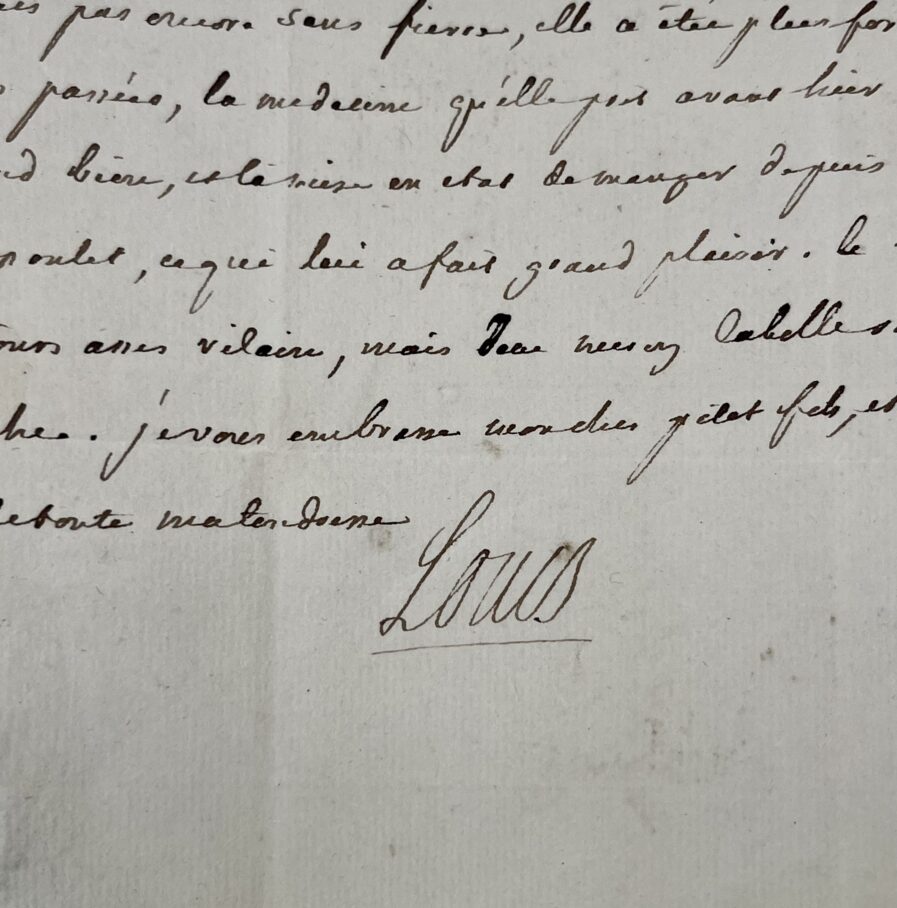 pas encore sans fievre, elle a étée plus for
passées, la medecine qu'elle prit avant hier
d bien, et la mise en etat de manger depuis
poulet, ce qui lui a fait grand plaisir. le
ours assés vilain, mais
he. je vous embrasse mon cher petit fils, et
de toute ma tendresse
Louis